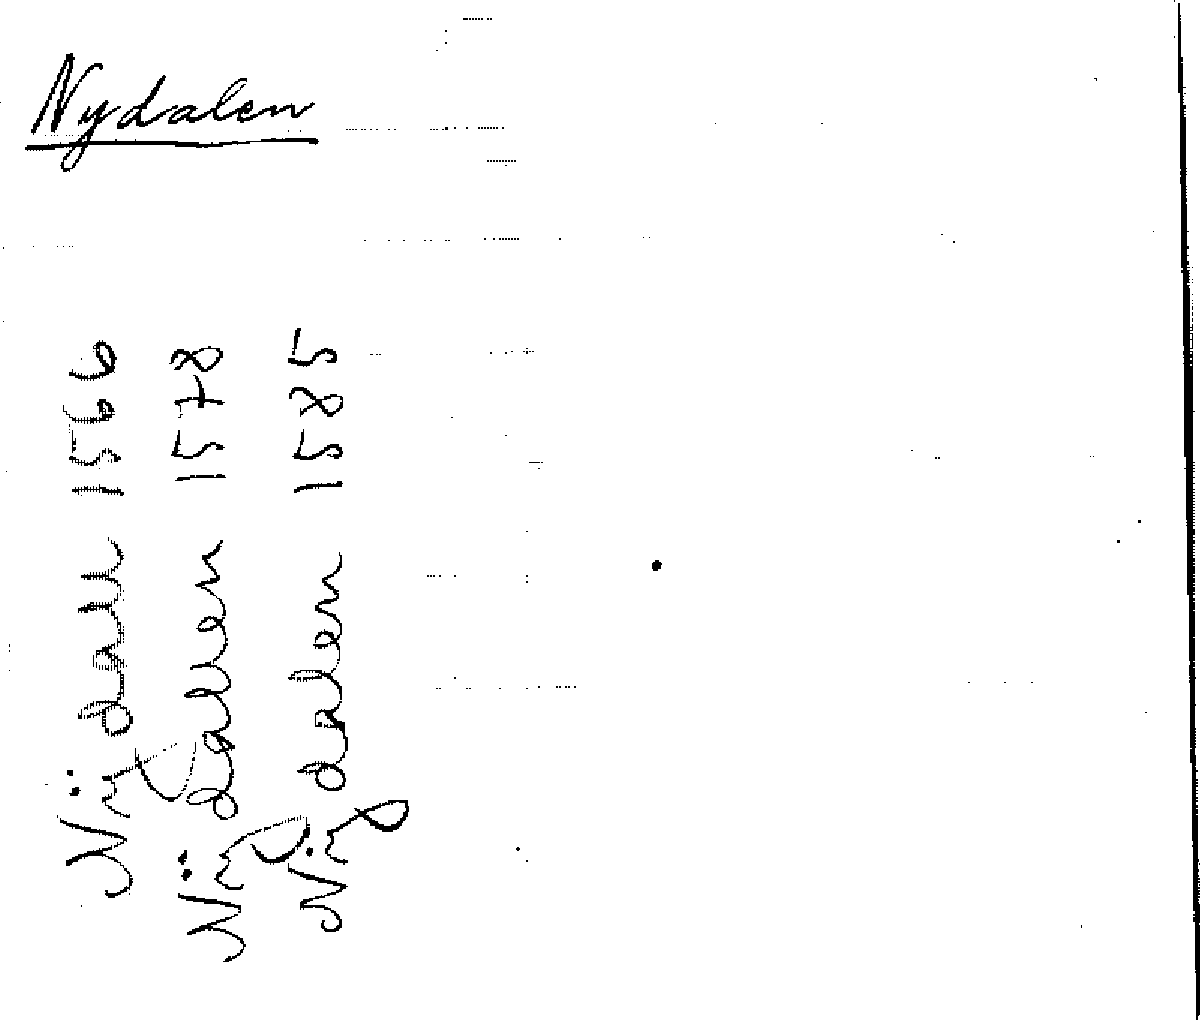 Nydalen
Nÿ dall 1566
Nÿ dallen 1578
Nÿ dalen 1585